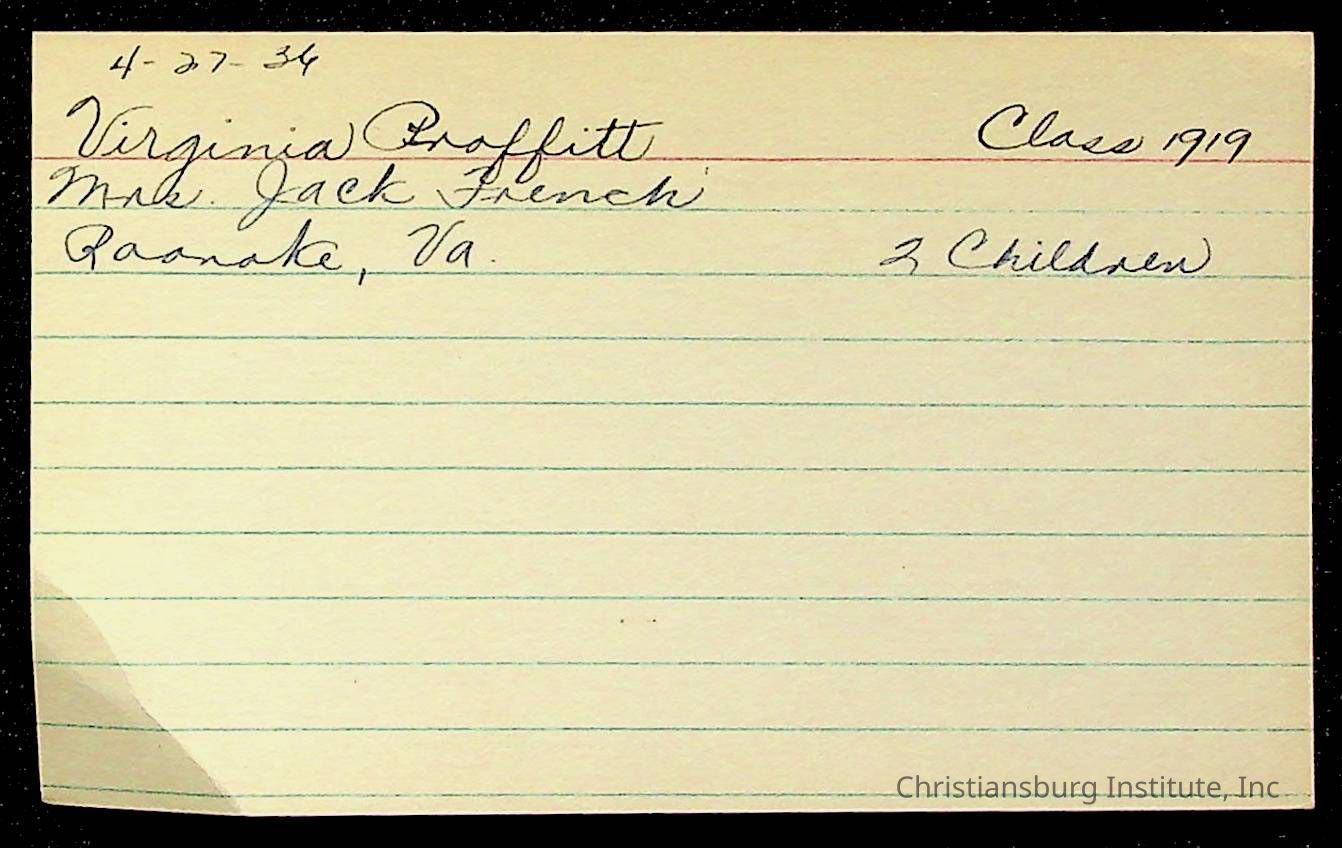 4-27-36
Virginia Proffitt Class 1919
Mrs. Jack French
Roanoke, Va. 2 Children
Christiansburg Institute, Inc